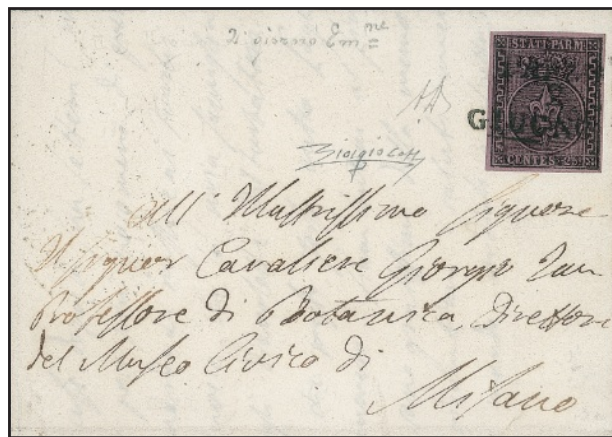 STATI PARM.
GIUGNO
CENTES. 25
All' Illustrissimo Signore
Il Signor Cavaliere Giorgio Jan
Professore di Botanica, Direttore
del Museo Civico di
Milano